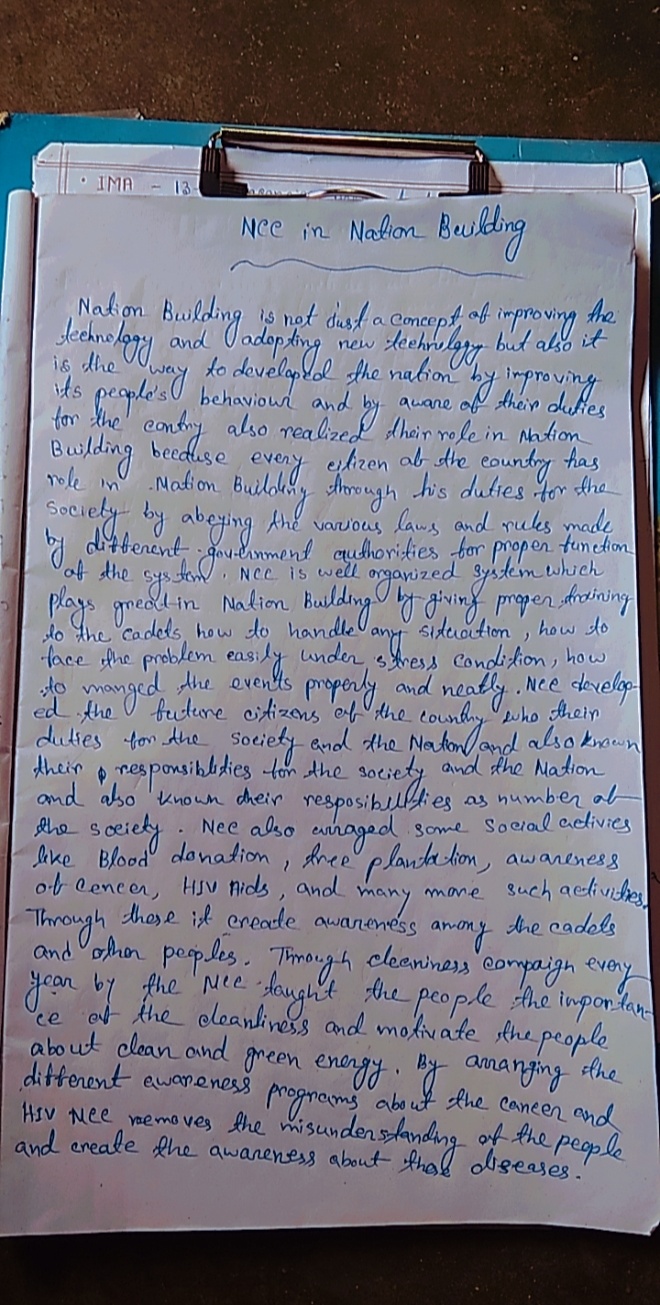 • IMA - 13
NCC in Nation Building
Nation Building is not dust a concept of improving the
technology and adopting new technology but also it
is the way to developed the nation by improving
its people's behaviour and by aware of their duties
for the contry also realized their role in Nation
Building because every citizen of the country has
role in Nation Building through his duties for the
society by abeying the various laws and rules made
by different government authorities for proper function
of the system. NCC is well organized system which
plays great in Nation Building by giving proper training
to the cadets, how to handle any situation, how to
face the problem easily under stress condition, how
to manged the events properly and neatly. NCC develop-
ed the future citizens of the country who their
duties for the society and the Nation and also known
their responsiblities for the society and the Nation
and also known their resposibilities as number of
the society. NCC also arraged some social activies
like Blood donation, tree plantation, awareness
of cencer, HSV Aids, and many more such activities.
Through these it create awareness among the cadets
and other peoples. Through cleaniness compaign every
year by the NCC taught the people the importan-
ce of the cleanliness and motivate the people
about clean and green energy. By arranging the
different awareness programs about the cancer and
HSV NCC removes the misunderstanding of the people
and create the awareness about these diseases.